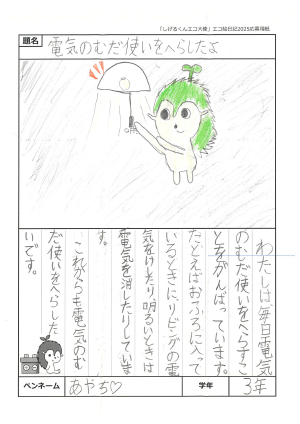 「しげるくんエコ大使」エコ絵日記2025応募用紙
題名
電気のむだ使いをへらしたよ
わたしは毎日電気
のむだ使いをへらすこ
とをがんばっています。
たとえばおふろに入って
いるときに、リビングの電
気をけしたり明るいときは
電気を消したりしていま
す。
これからも電気のむ
だ使いをへらした
いです。
ペンネーム
あやち♡
学年
3年